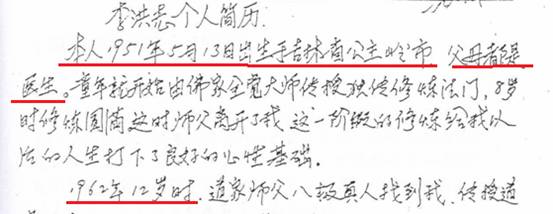 李洪志个人简历.
本人1951年5月13日出生于吉林省公主岭市 父母都是
医生。童年就开始由佛家全觉大师传授独传修炼法门, 8岁
时修炼圆满这时师父离开了我 这一阶段的修炼给我以
后的人生打下了良好的心性基础.
1962年12岁时. 道家师父八极真人找到我. 传授道